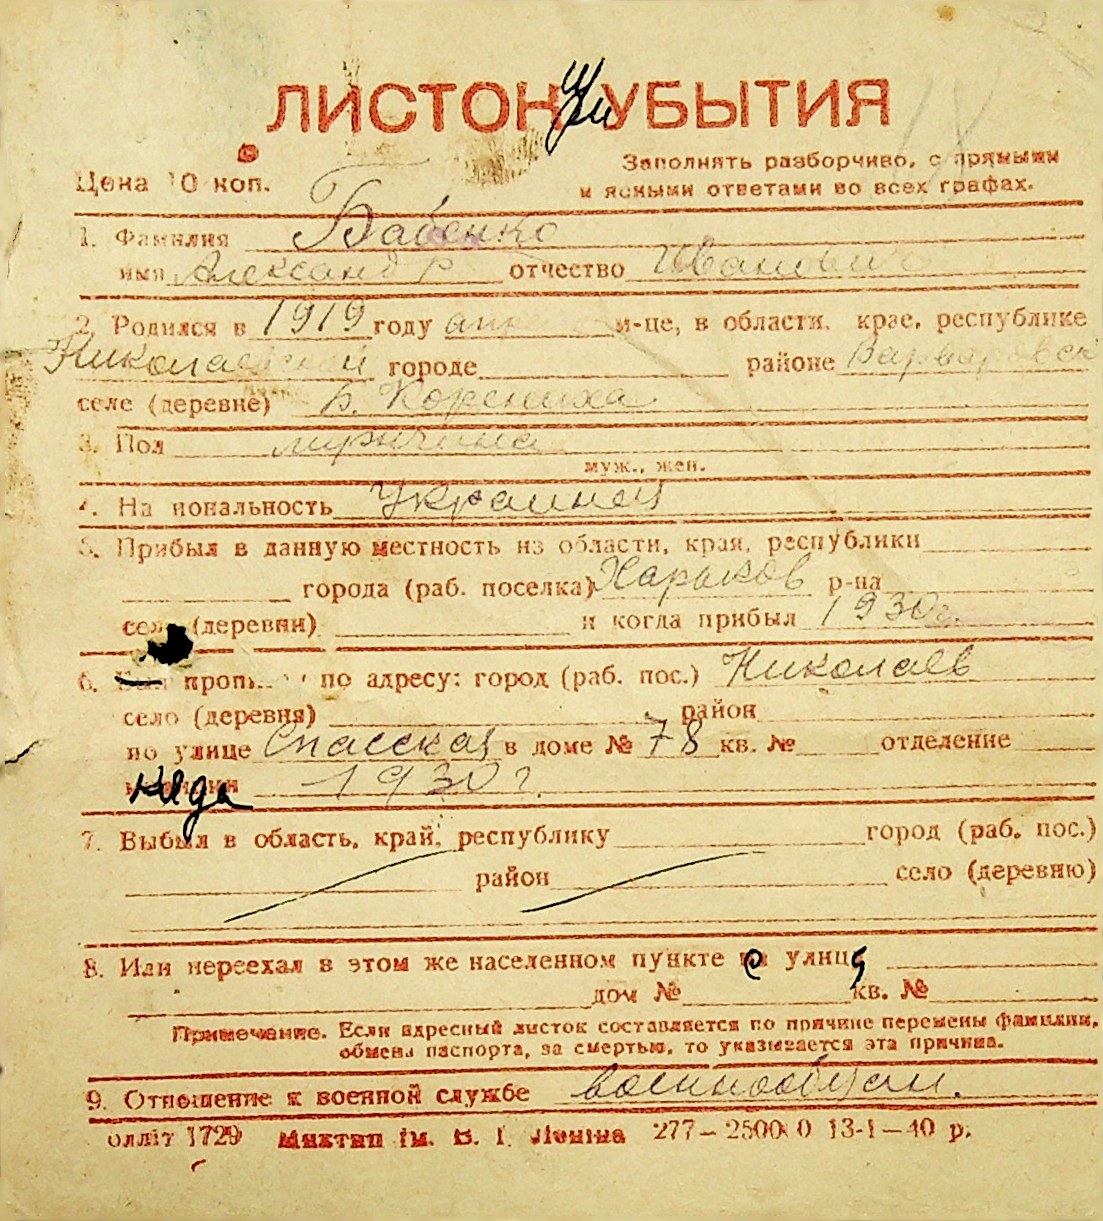 ЛИСТОК УБЫТИЯ
Заполнять разборчиво, с прямыми
Цена 10 коп.
и ясными ответами во всех графах.
1. Фамилия Бабенко
имя Александр отчество Иванович
2. Родился в 1919 году апреле м-це, в области, крае, республике
Николаевской городе районе Варваровск
селе (деревне) Б. Корениха
3. Пол мужчина
муж., жен.
4. Национальность Украинец
5. Прибыл в данную местность из области, края, республики
города (раб. поселка) Харьков р-на
село (деревни) и когда прибыл 1930 г.
6. по адресу: город (раб. пос.) Николаев
село (деревня) район
по улице Спасская в доме № 78 кв. № отделение
1930 г.
7. Выбыл в область, край, республику город (раб. пос.)
район село (деревню)
8. Или переехал в этом же населенном пункте с улицы
дом № кв. №
Примечание. Если адресный листок составляется по причине перемены фамилии,
обмена паспорта, за смертью, то указывается эта причина.
9. Отношение к военной службе военнообязан.
оллліт 1729 ім. В. І. Леніна 277—25000 0 13-1—40 р.